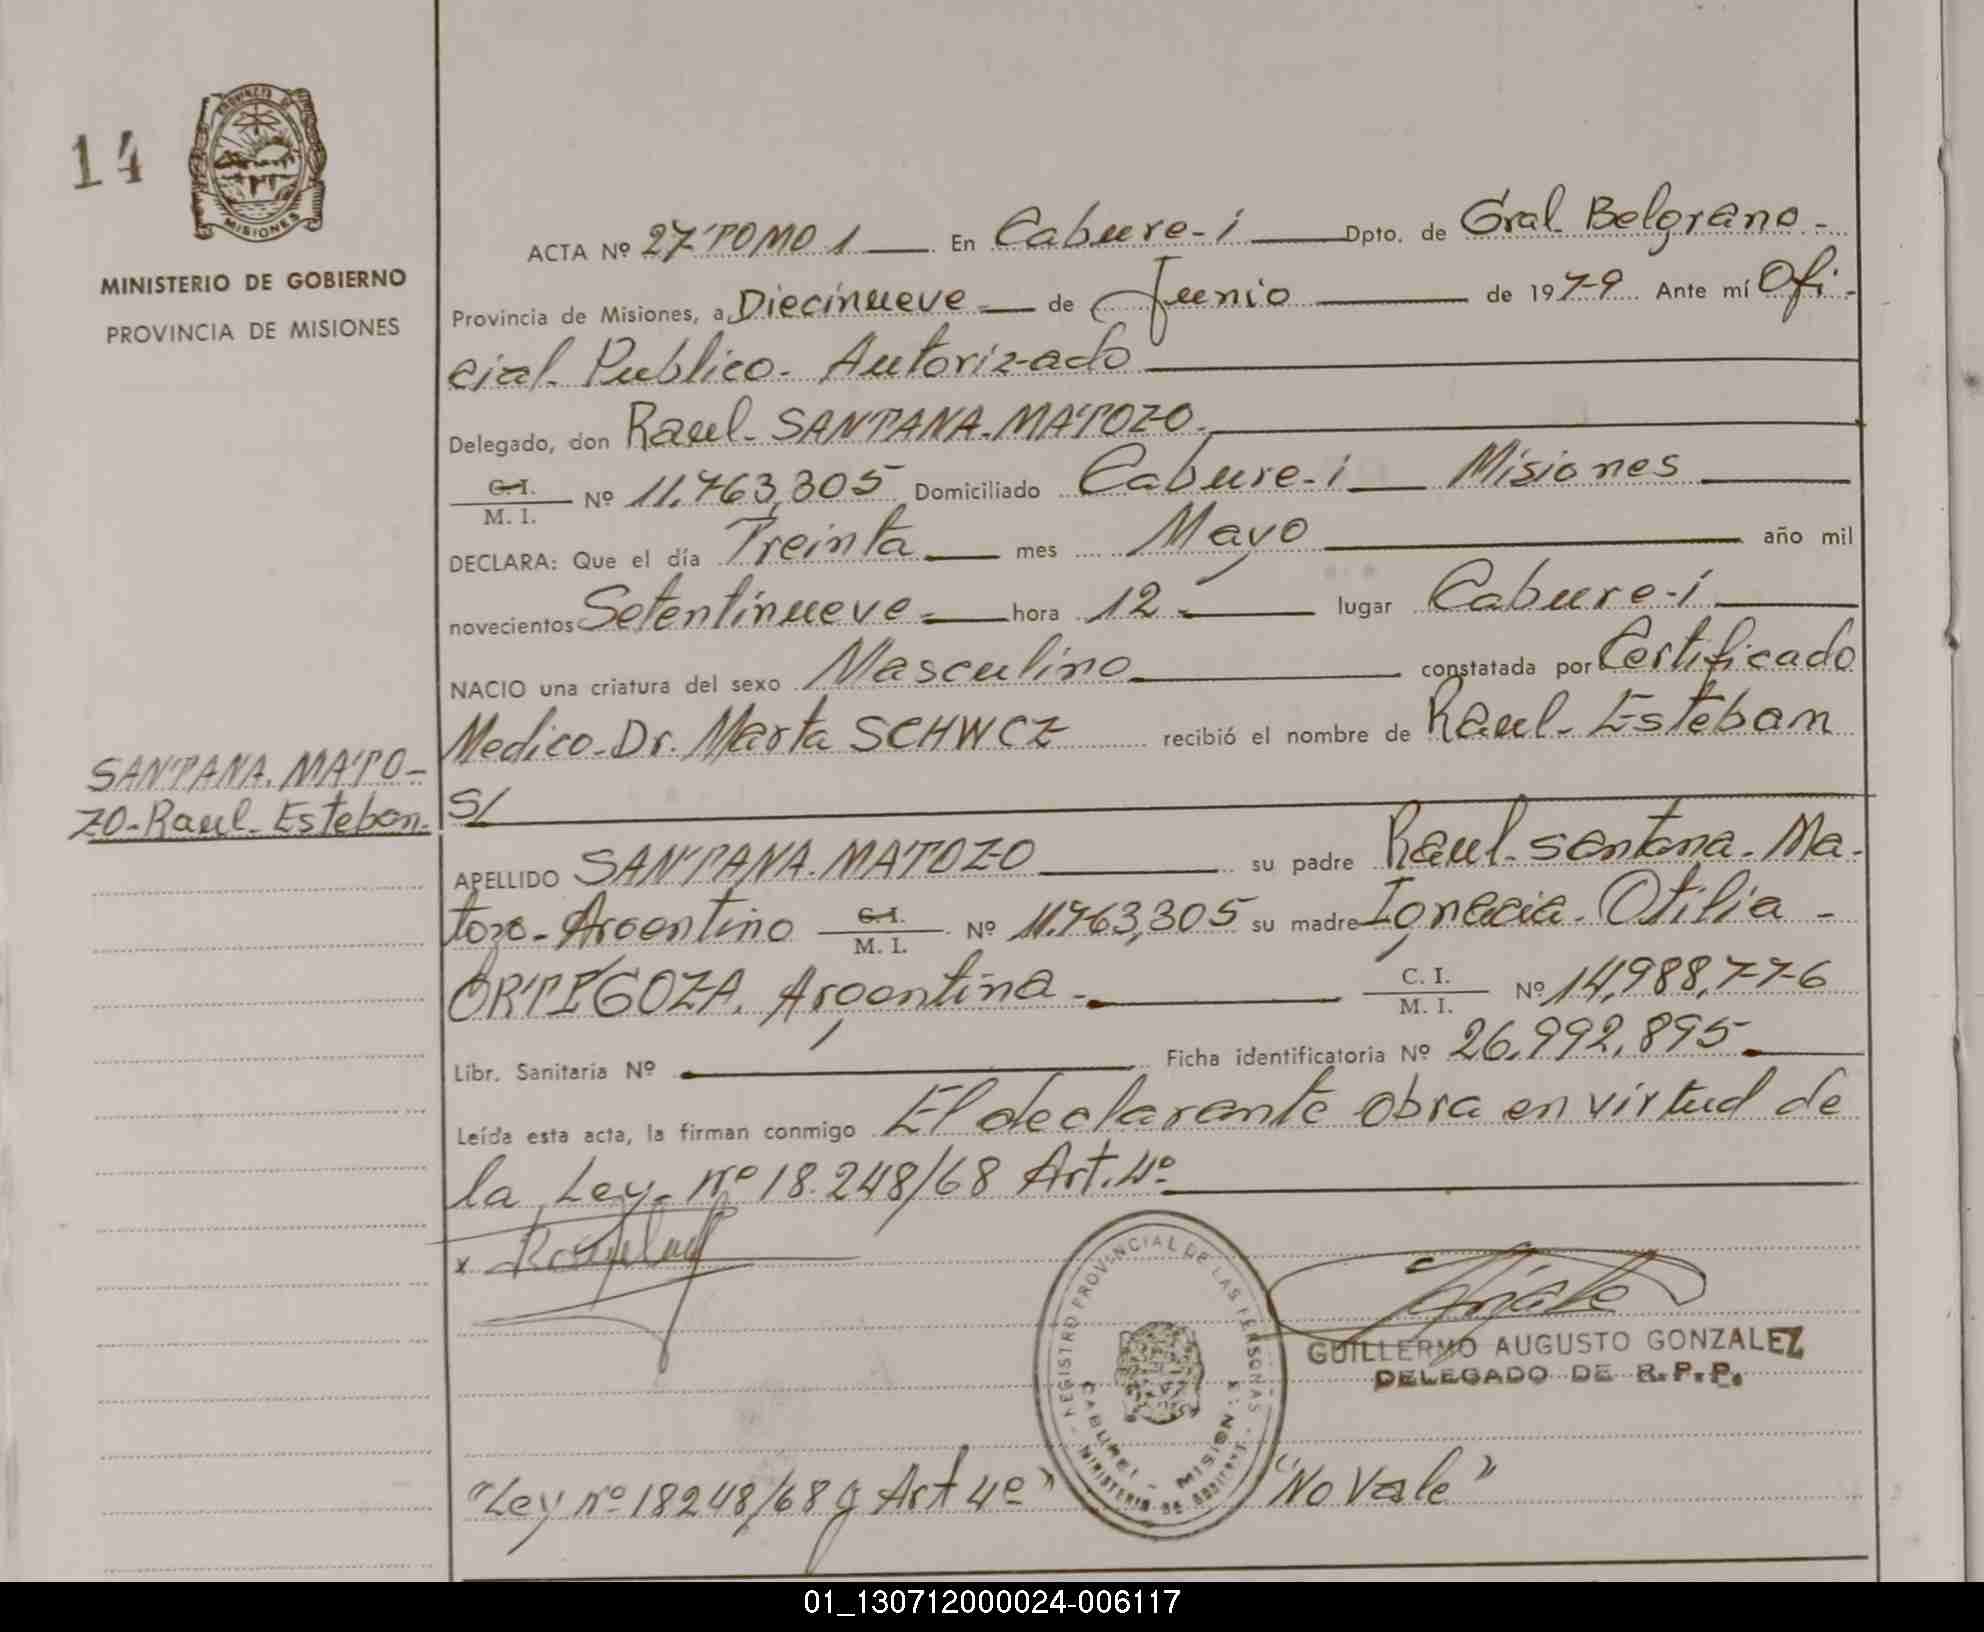 14
PROVINCIA DE
MISIONES
MINISTERIO DE GOBIERNO
PROVINCIA DE MISIONES
SANTANA. MATO-
ZO-Raul-Esteban.
ACTA Nº 27 TOMO 1 En Cabure-i Dpto. de Gral. Belgrano.-
Provincia de Misiones, a Diecinueve de Junio de 1979 Ante mí Ofi-
cial. Publico. Autorizado
Delegado, don Raul. SANTANA. MATOZO.
C. I. / M. I. Nº 11.763,305 Domiciliado Cabure-i Misiones
DECLARA: Que el día Treinta mes Mayo año mil
novecientos Setentinueve hora 12 lugar Cabure-i
NACIO una criatura del sexo Masculino constatada por Certificado
Medico-Dr. Marta SCHWCZ recibió el nombre de Raul-Esteban
S/
APELLIDO SANTANA. MATOZO su padre Raul-santana. Ma-
tozo-Argentino C. I. / M. I. Nº 11.763,305 su madre Ignacia. Otilia-
ORTIGOZA. Argentina.- C. I. / M. I. Nº 14,988,776
Libr. Sanitaria Nº Ficha identificatoria Nº 26.992,895
Leída esta acta, la firman conmigo El declarante obra en virtud de
la Ley-nº 18.248/68 Art. 4º
x
REGISTRO PROVINCIAL DE LAS PERSONAS
CABUREI - MISIONES
GUILLERMO AUGUSTO GONZALEZ
DELEGADO DE R.P.P.
"Ley nº 18248/68 y Art 4º" "No Vale"
01_130712000024-006117